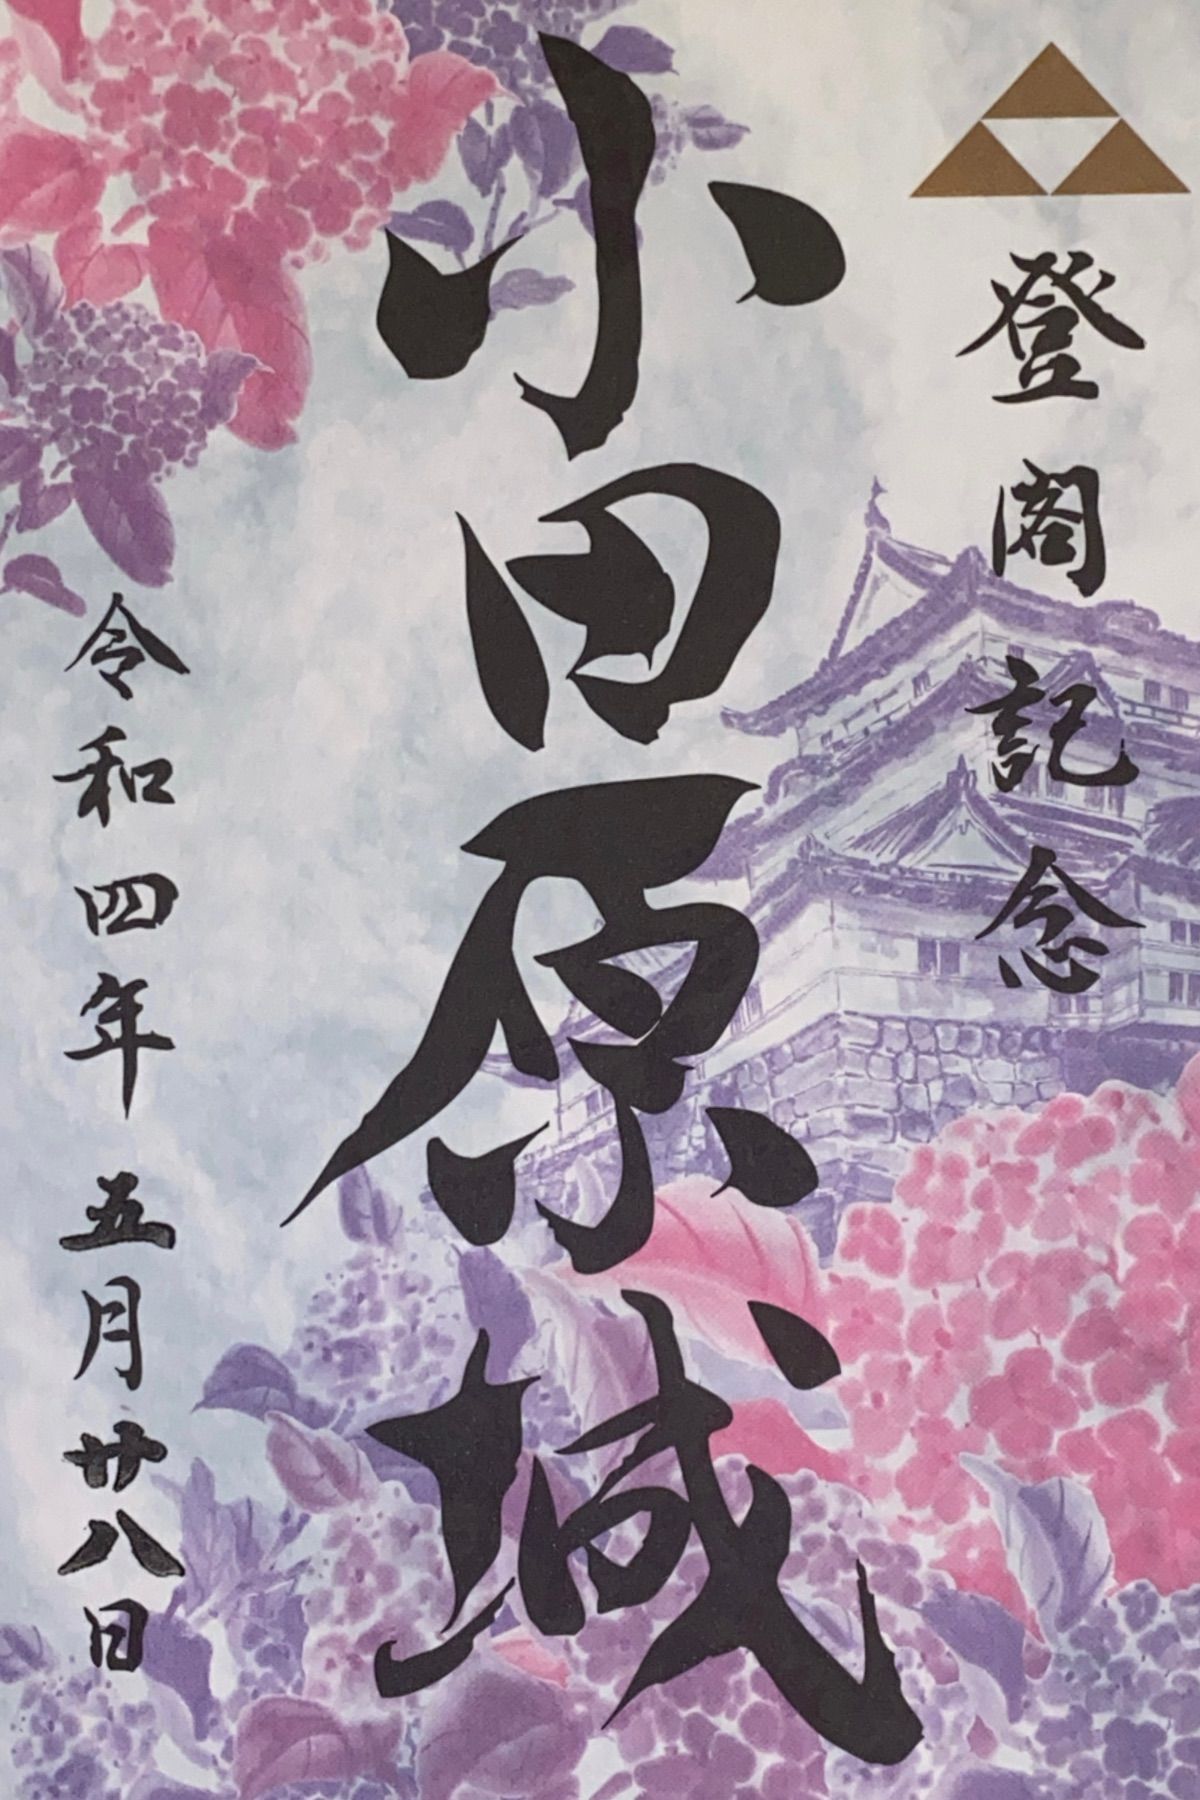 登閣記念
小田原城
令和四年五月廿八日